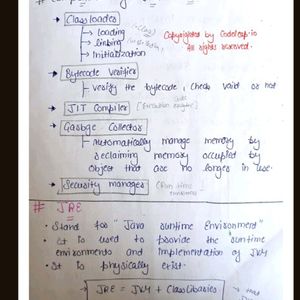 → Classloader
→ loading
→ linking
→ Initialization
Copyrighted by Codeleap.io
All rights reserved.
→ Bytecode Verifier
verify the bytecode, check valid or not
→ JIT Compiler
→ Garbage Collector
Automatically manage memory by
reclaiming memory occupied by
object that are no longer in use.
→ Security manager
# JRE
• Stand for "Java runtime Environment"
• It is used to provide the runtime
environments and implementation of JVM
• It is physically exist.
→ JRE = JVM + Class libraries